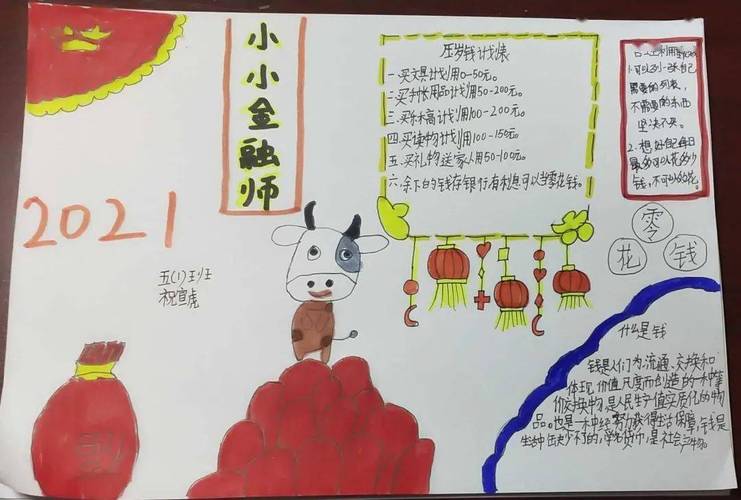 小小金融师
2021
五(1)班
祝宣虎
压岁钱计划表
一.买文具计划用0-50元。
二.买生活用品计划用50-200元。
三.买乐高计划用100-200元。
四.买读物计划用100-150元。
五.买礼物送家人用50-100元。
六.余下的钱存银行有利息可以当零花钱。
1.可以列一张自己
需要的列表,
不需要的东西
坚决不买。
2.想好自己每日
最多可以花多少
钱,不可以多花。
零
花 钱
什么是钱
钱是人们为流通、交换和
体现价值尺度而创造的一种等
价交换物,是人民生产值实质化的物
品。也是一种经努力获得生活保障,钱是
生活中缺少不了的,
是社会产物。